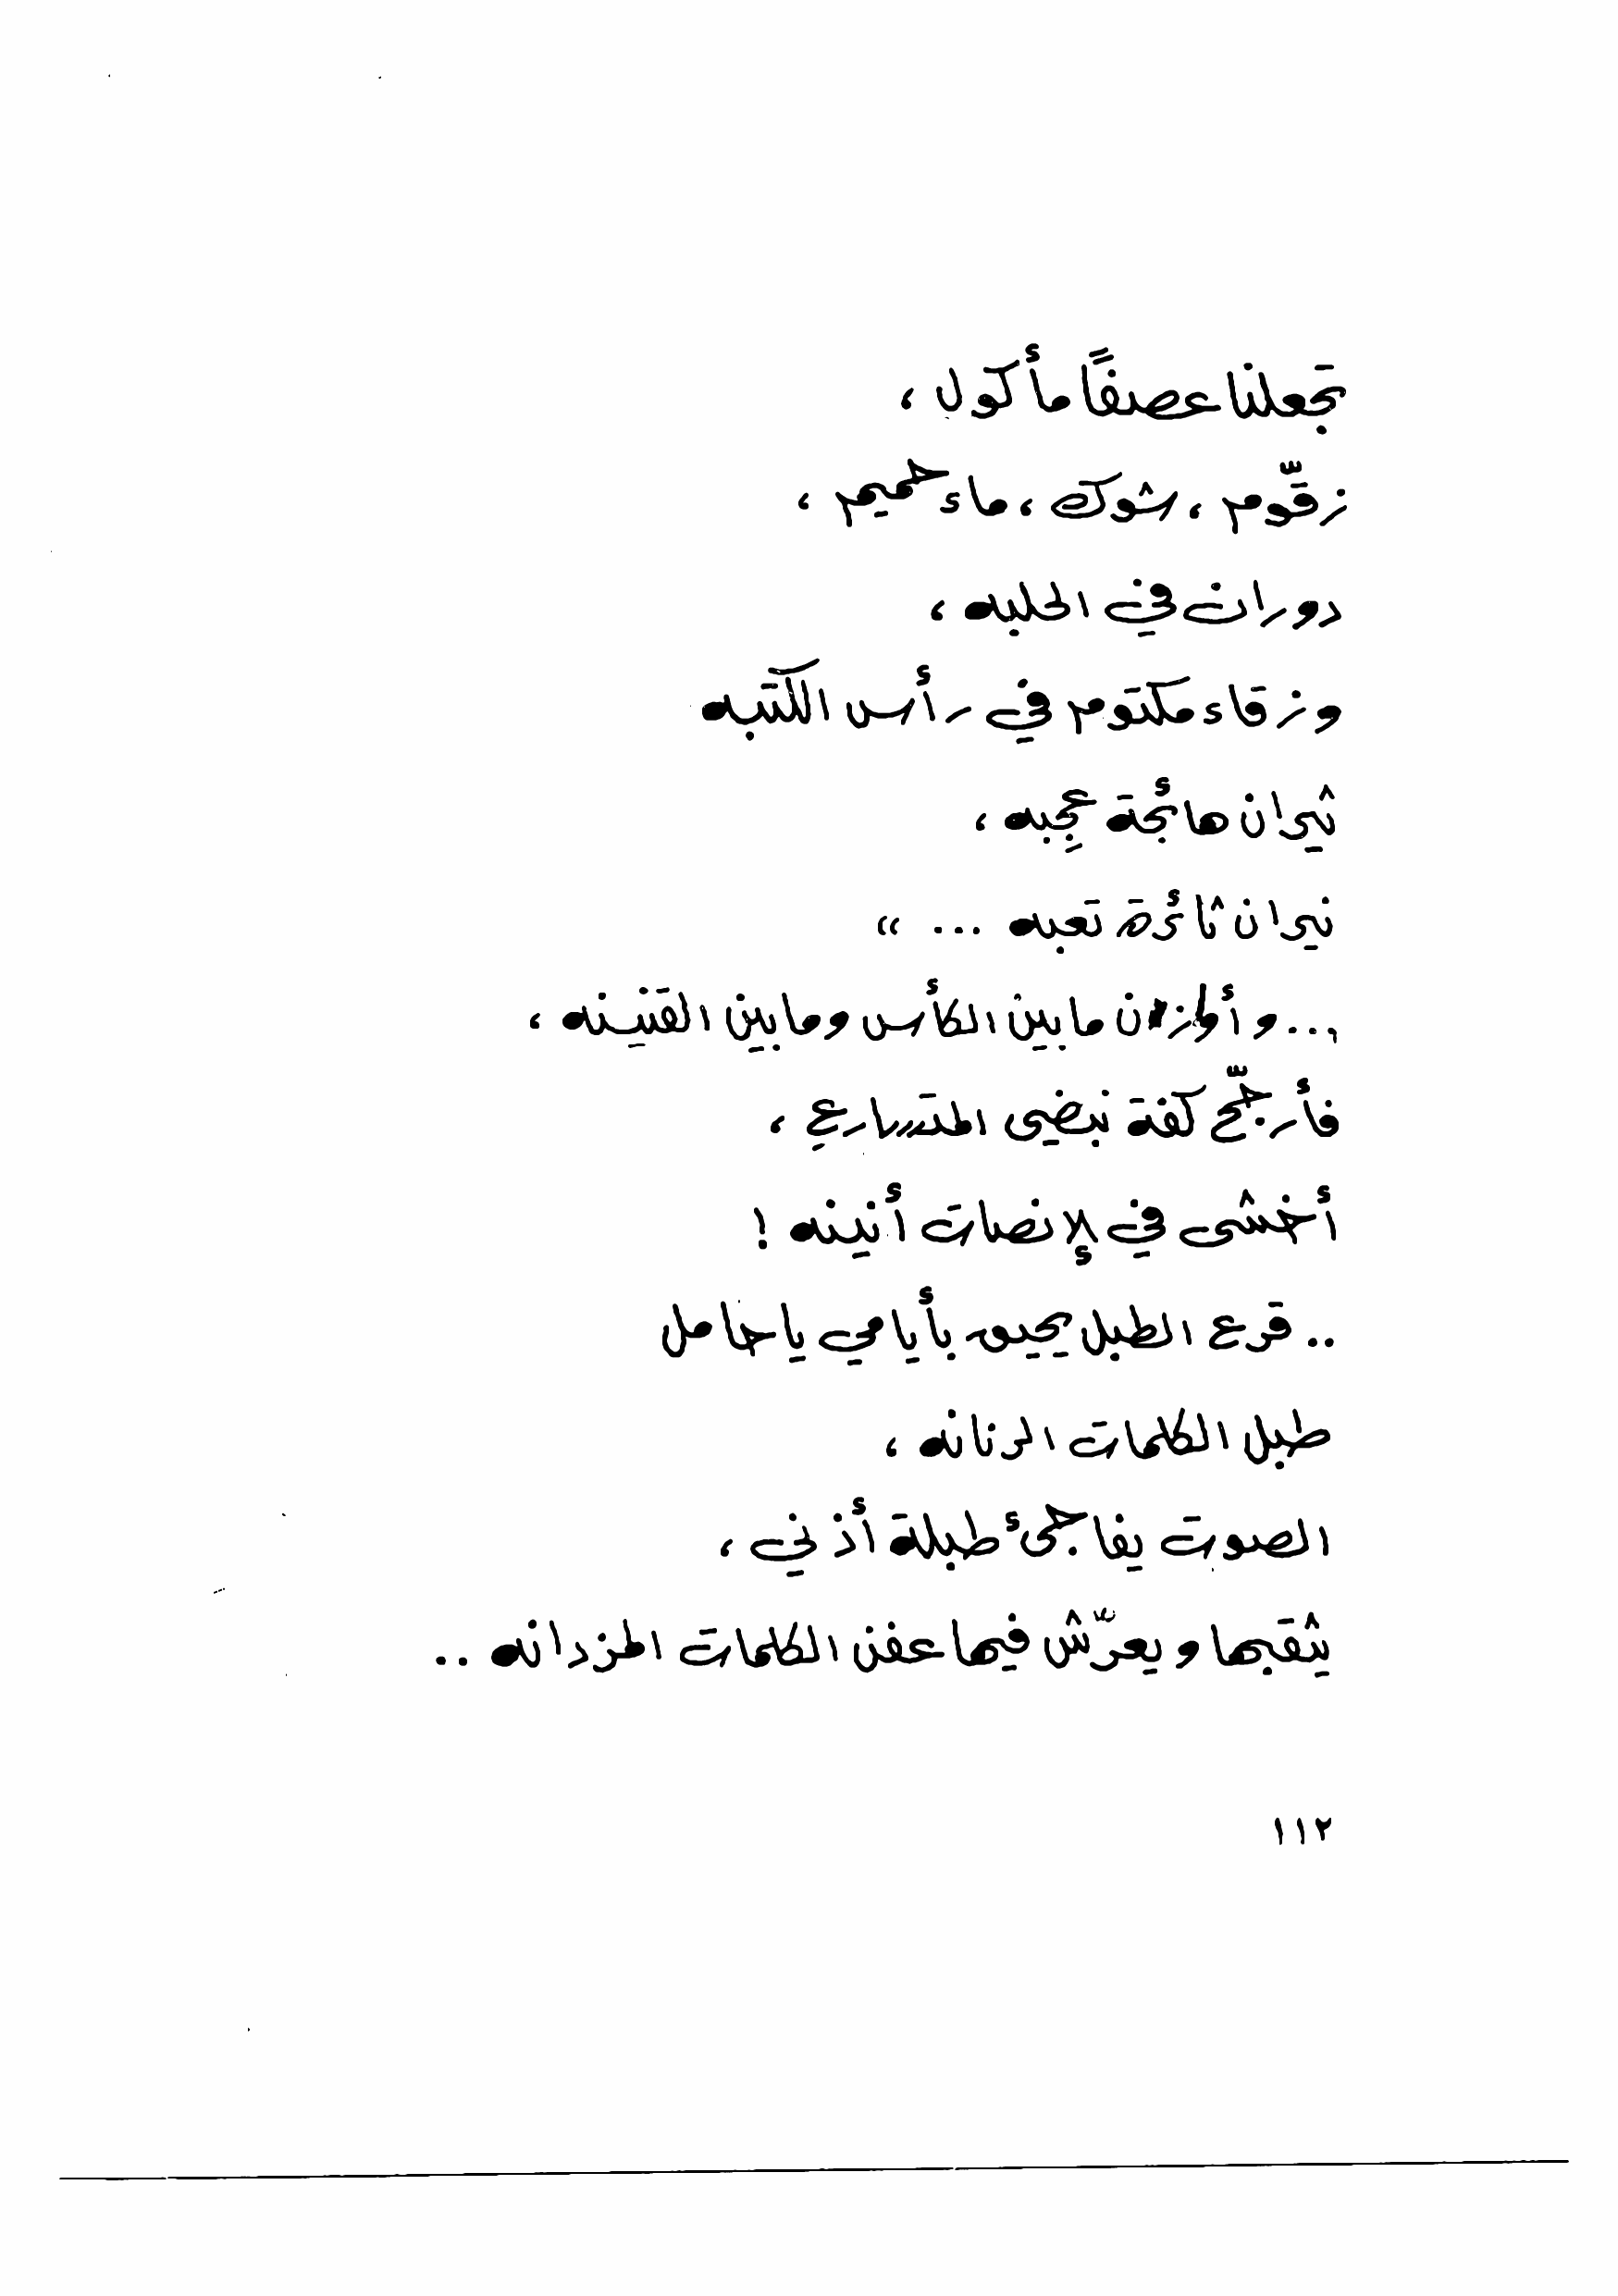 تجعلنا عصفًا مأكول ،
زقّوم ، شوك ، ماء حميم ،
دوران في الحلبه ،
وزقاء مكتوم في رأس الكتبه
ثيران هائجة عجِبه ،
نيران ثائرة تعبه ... »
... و أوازن ما بين الكأس وما بين القنينه ،
فأرجّح كفة نبضى المتسارع ،
أخشى في لإنصات أنينه !
.. قرع الطبل يحيق بأيامي يا حامل
طبل الكلمات الرنانه ،
الصوت يفاجئ طبلة أذني ،
يثقبها و يعرّش فيها عفن الكلمات المزدانه ..
١١٢